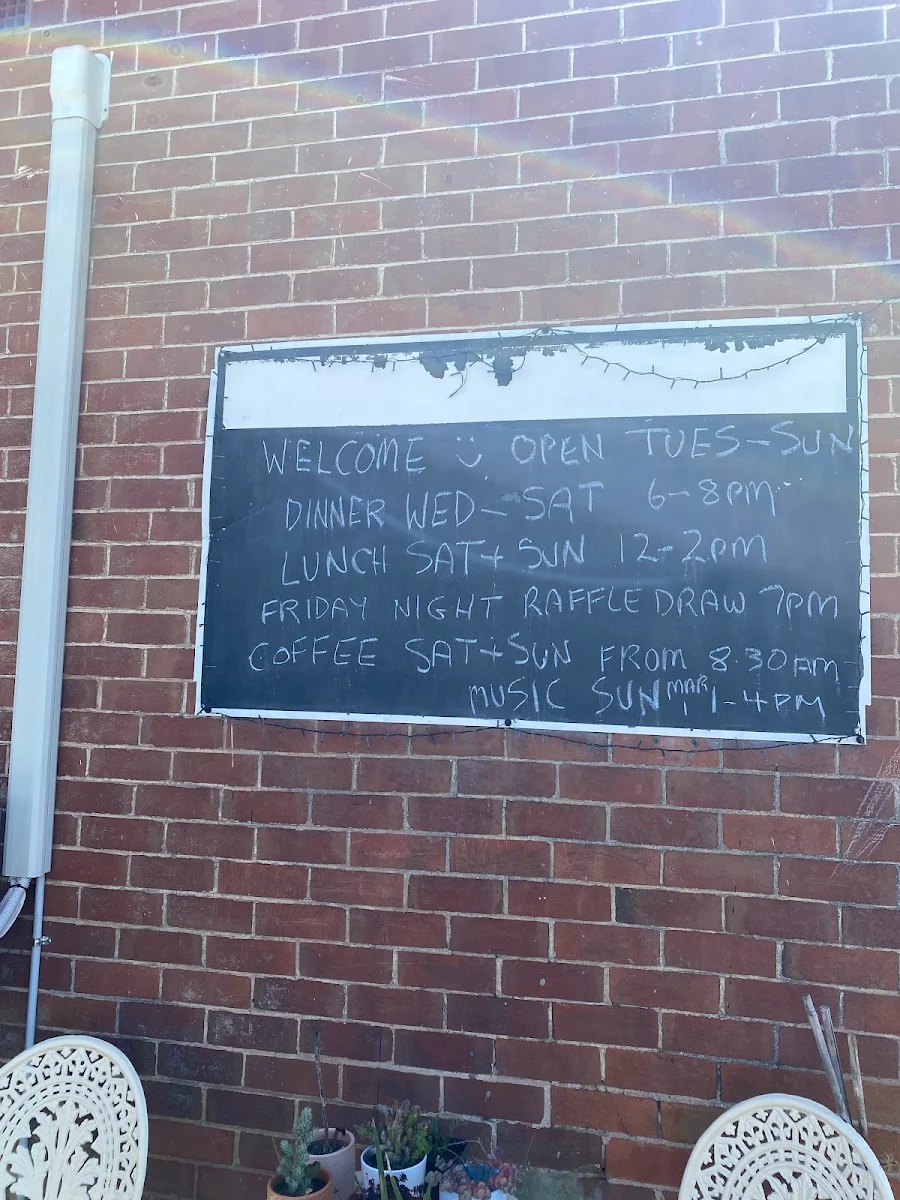 WELCOME :) OPEN TUES-SUN
DINNER WED-SAT 6-8PM
LUNCH SAT+SUN 12-2PM
FRIDAY NIGHT RAFFLE DRAW 7PM
COFFEE SAT+SUN FROM 8.30AM
MUSIC SUN MAR 1 1-4PM